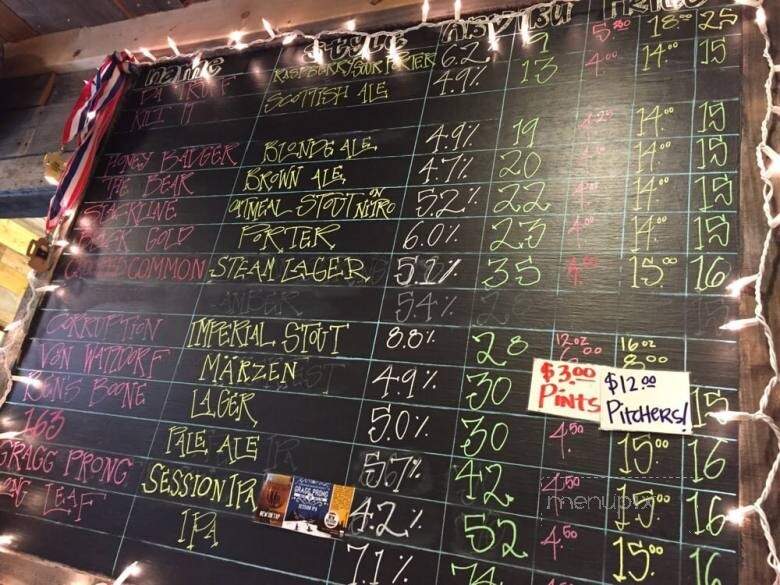 NAME STYLE ABV IBU PRICE
RASPBERRY SOUR PORTER 6.2 9 18.00 25
SCOTTISH ALE 4.9% 13 4.00 14.00 15
HONEY BADGER BLONDE ALE 4.9% 19 14.00 15
THE BEAR BROWN ALE 4.7% 20 14.00 15
OATMEAL STOUT ON NITRO 5.2% 22 14.00 15
BLACK GOLD PORTER 6.0% 23 14.00 15
COMMON STEAM LAGER 5.1% 35 15.00 16
AMBER 5.4% 28 15
CORRUPTION IMPERIAL STOUT 8.8% 28 12oz 16oz 8.00
VON WATZDORF MÄRZEN 4.9% 30 $3.00 PINTS $12.00 PITCHERS! 15
BENS BOONE LAGER 5.0% 30 4.50 15.00 16
163 PALE ALE 5.7% 42 4.50 15.00 16
GRAGG PRONG SESSION IPA GRAGG PRONG SESSION IPA 4.2% 52 4.50 15.00 16
LEAF IPA 7.1% 74
menupix